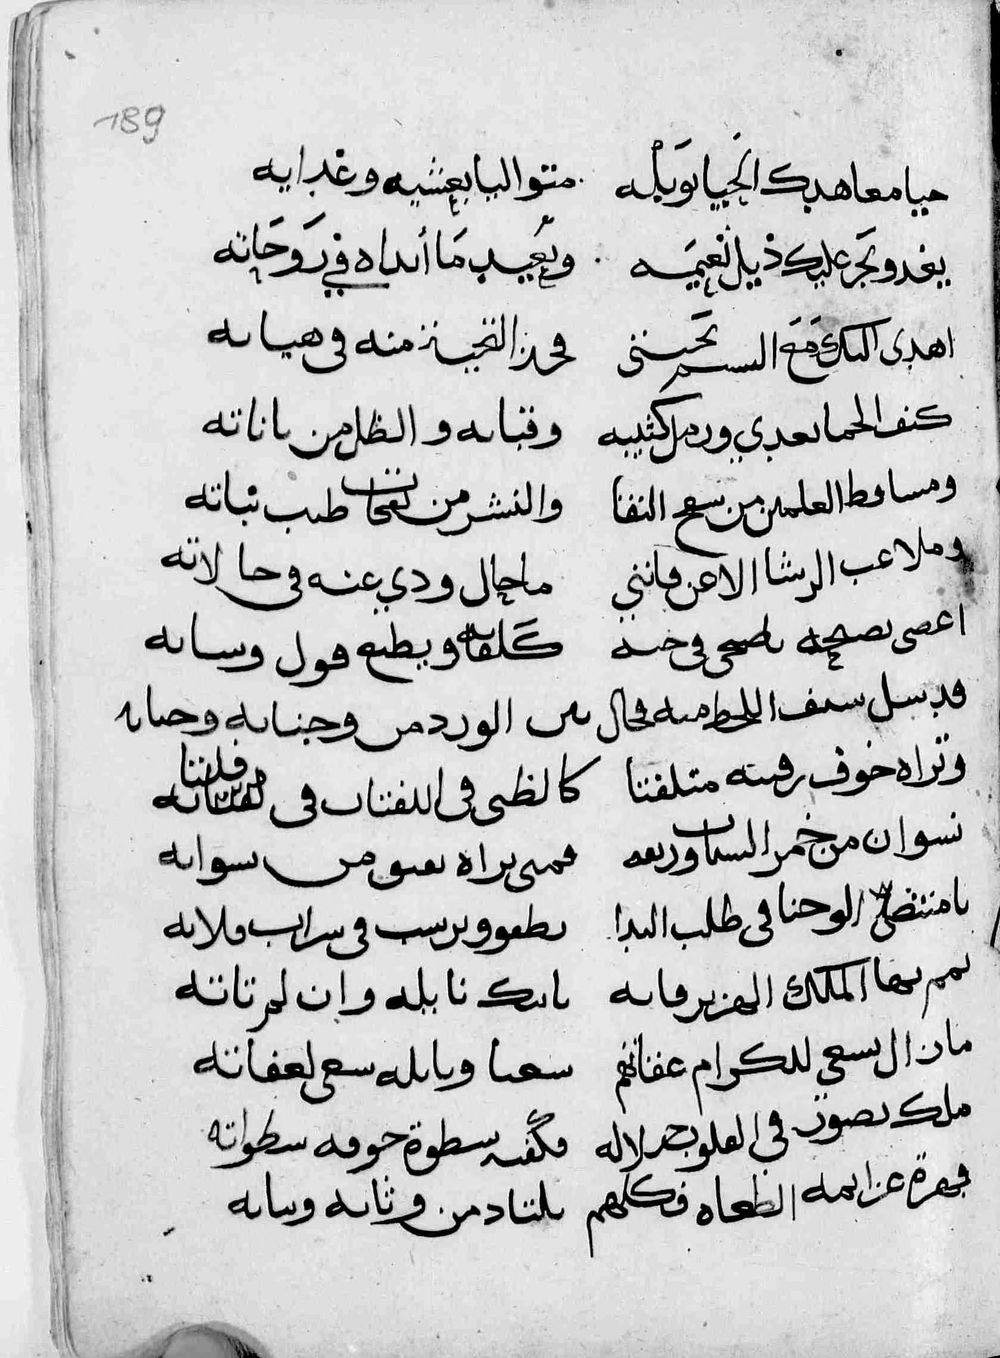 189
حيا معاهدك الحيا بوبله متواليا بعشيه وغدايه
يغدو يجر عليك ذيل نعيمه ويعيد ما أبداه في روحاته
اهدى اليك مع النسيم تحيتي فحز التحية منه في هباته
كنف الحما بعدي ورمل كثيبه وقبابه والظل من باناته
ومساقط العلمين من سفح النقا والنشر من نفحات طيب نباته
وملاعب الرشا الاغن فانني ما حال ودي عنه في حالاته
اعصى نصيحة ناصحي في حبه كلفا به ويطيع قول وشاته
قد سل سيف اللحظ منه فحال بين الورد من وجناته وجناته
وتراه خوف رقيبه متلفتا كالظبي في اللفتات في فلتاته
نشوان من خمر الشباب وريقه فمتى يراه يفيق من نشواته
يا منتضي الوجنا في طلب الندا يطفو ويرسب في سراب فلاته
يمم بها الملك الهزبر فانه ياتيك نايله وان لم تاته
ما زال يسعى للكرام عفاتهم سعيا ونايله سعى لعفاته
ملك تصور في القلوب جلاله فكفته سطوة خوفه سطواته
قهرة عزايمه الطغاه فكلهم يلتاذ من وثاته وبياته